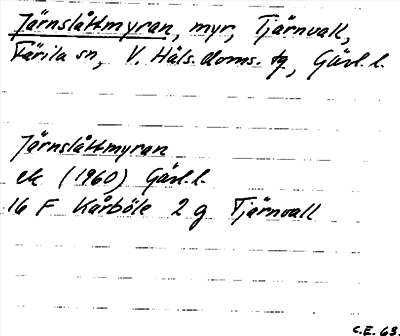 Järnslåttmyran, myr, Tjärnvall,
Färila sn, V. Häls. doms. tg, Gävl. l.
Järnslåttmyran
ek (1960) Gävl. l.
16 F Kårböle 2 g Tjärnvall
C.E. 63.